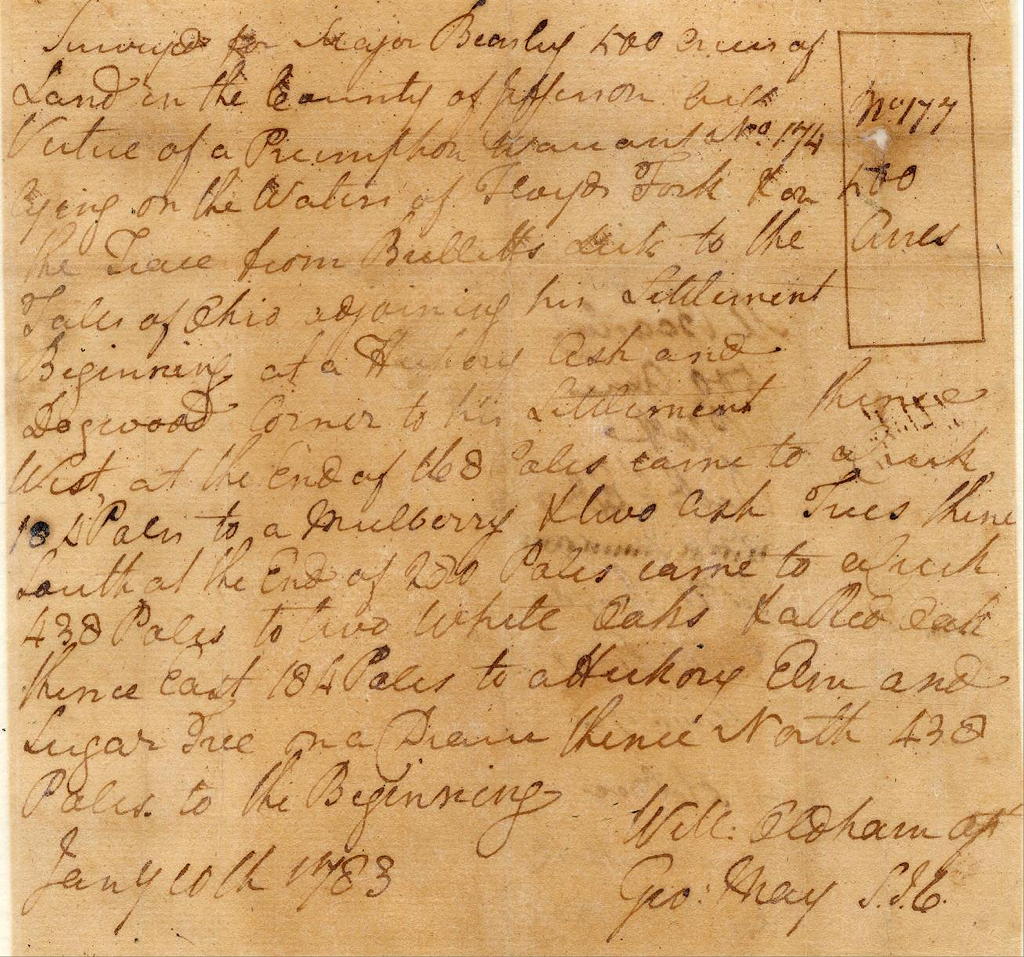 Surveyed for Major Beasley 500 Acres of
Land in the County of Jefferson by
Virtue of a Preemption Warrant No. 174
lying on the Waters of Floyds Fork & on
the Trace from Bullitts Lick to the
Falls of Ohio adjoining his Settlement
Beginning at a Hickory Ash and
Dogwood Corner to his Settlement thence
West, at the End of 168 Poles came to a Lick
184 Poles to a Mulberry & two Ash Trees thence
South at the End of 280 Poles came to a Lick
438 Poles to two White Oaks & a Red Oak
thence East 184 Poles to a Hickory Elm and
Sugar Tree on a Drain thence North 438
Poles to the Beginning
Jany 10th 1783
Will: Oldham ast
Geo: May S.J.C.
No. 177
500
Acres